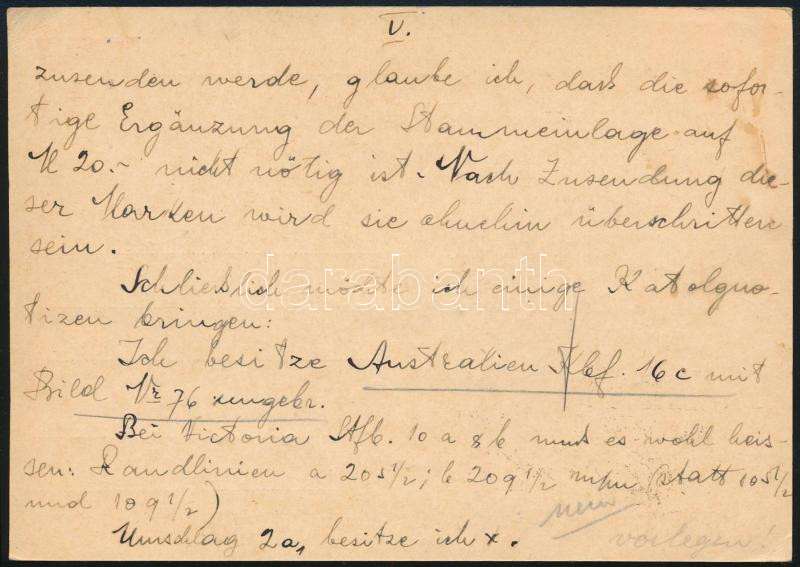 V.
zusenden werde, glaube ich, dass die sofor-
tige Ergänzung der Stammeinlage auf
M 20.- nicht nötig ist. Nach Zusendung die-
ser Marken wird sie ohnehin überschritten
sein.
Schliesslich möchte ich einige Katalgno-
tizen bringen:
Ich besitze Australien Kbf. 16c mit
Bild Nr 76 ungebr.
Bei Victoria Stfb. 10 a & b muss es wohl heis-
sen: Randlinien a 205 1/2; b 209 1/2 m/m (statt 105 1/2
und 109 1/2)
Umschlag 2a, besitze ich x.
nein
vorlegen!
darabanth